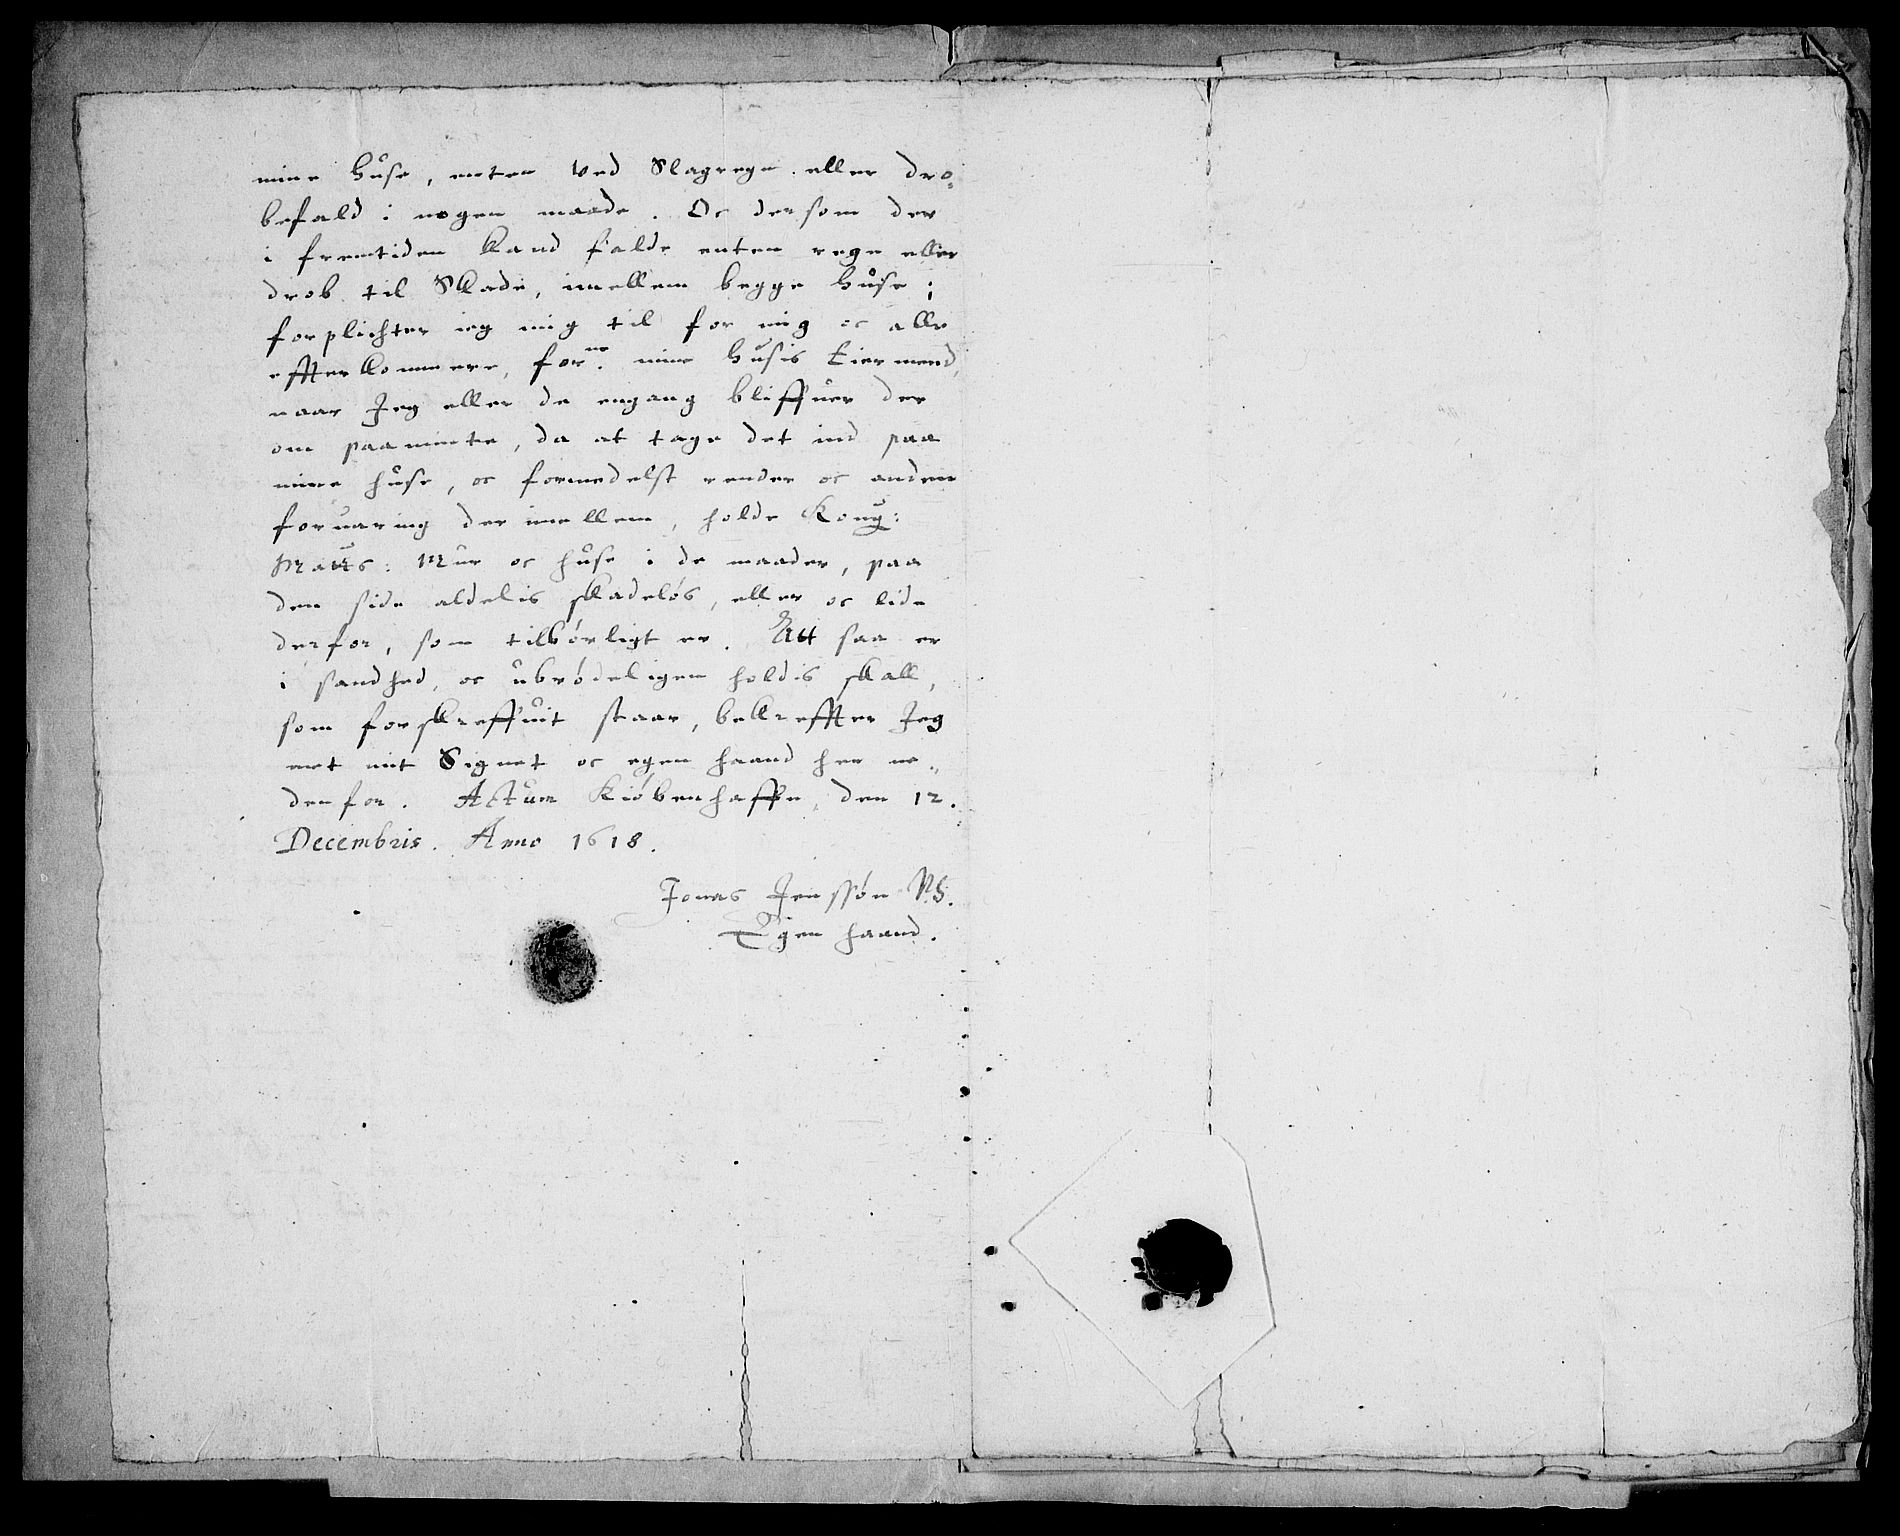 mine huse, enten ved Slagregn eller dro-
befald i nogen maade. Oc dersom der
i fremtiden kand falde enten regn eller
drob til Skade, imellem begge huse;
forplichter ieg mig til for mig oc alle
effterkommere, forne. mine husis Eiermend,
naar Jeg eller de engang bliffuer der
om paaminte, da at tage det ind paa
mine huse, oc formedelst render oc anden
foruaring der imellem, holde Kong:
Matts: Mur oc huse i de maader, paa
den side aldelis skadeløs, eller oc lide
derfor, som tilbørligt er. Att saa er
i sandhed, oc ubrødeligen holdis skall,
som forskreffuit staar, bekreffter Jeg
met mit Signet oc egen haand her ne-
denfor. Actum Kiøbenhaffn, den 12.
Decembris. Anno 1618.
Jonas Jenssøn
Egen haand.